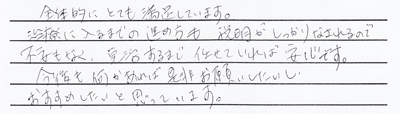 全体的にとても満足しています。
治療に入るまでの進め方も 説明がしっかりなされるので
不安もなく、完治するまで 任せていれば 安心です。
今後も何かあれば是非お願いしたいし
おすすめしたいと思っています。